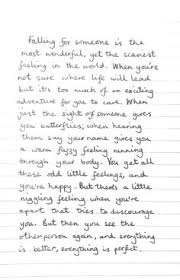 Falling for someone is the
most wonderful, yet the scariest
feeling in the world. When you're
not sure where life will lead
but it's too much of an exciting
adventure for you to care. When
just the sight of someone gives
you butterflies, when hearing
them say your name gives you
a warm fuzzy feeling running
through your body. You get all
these odd little feelings, and
you're happy. But there's a little
niggling feeling when you're
apart that tries to discourage
you. But then you see the
other person again, and everything
is better, everything is perfect.